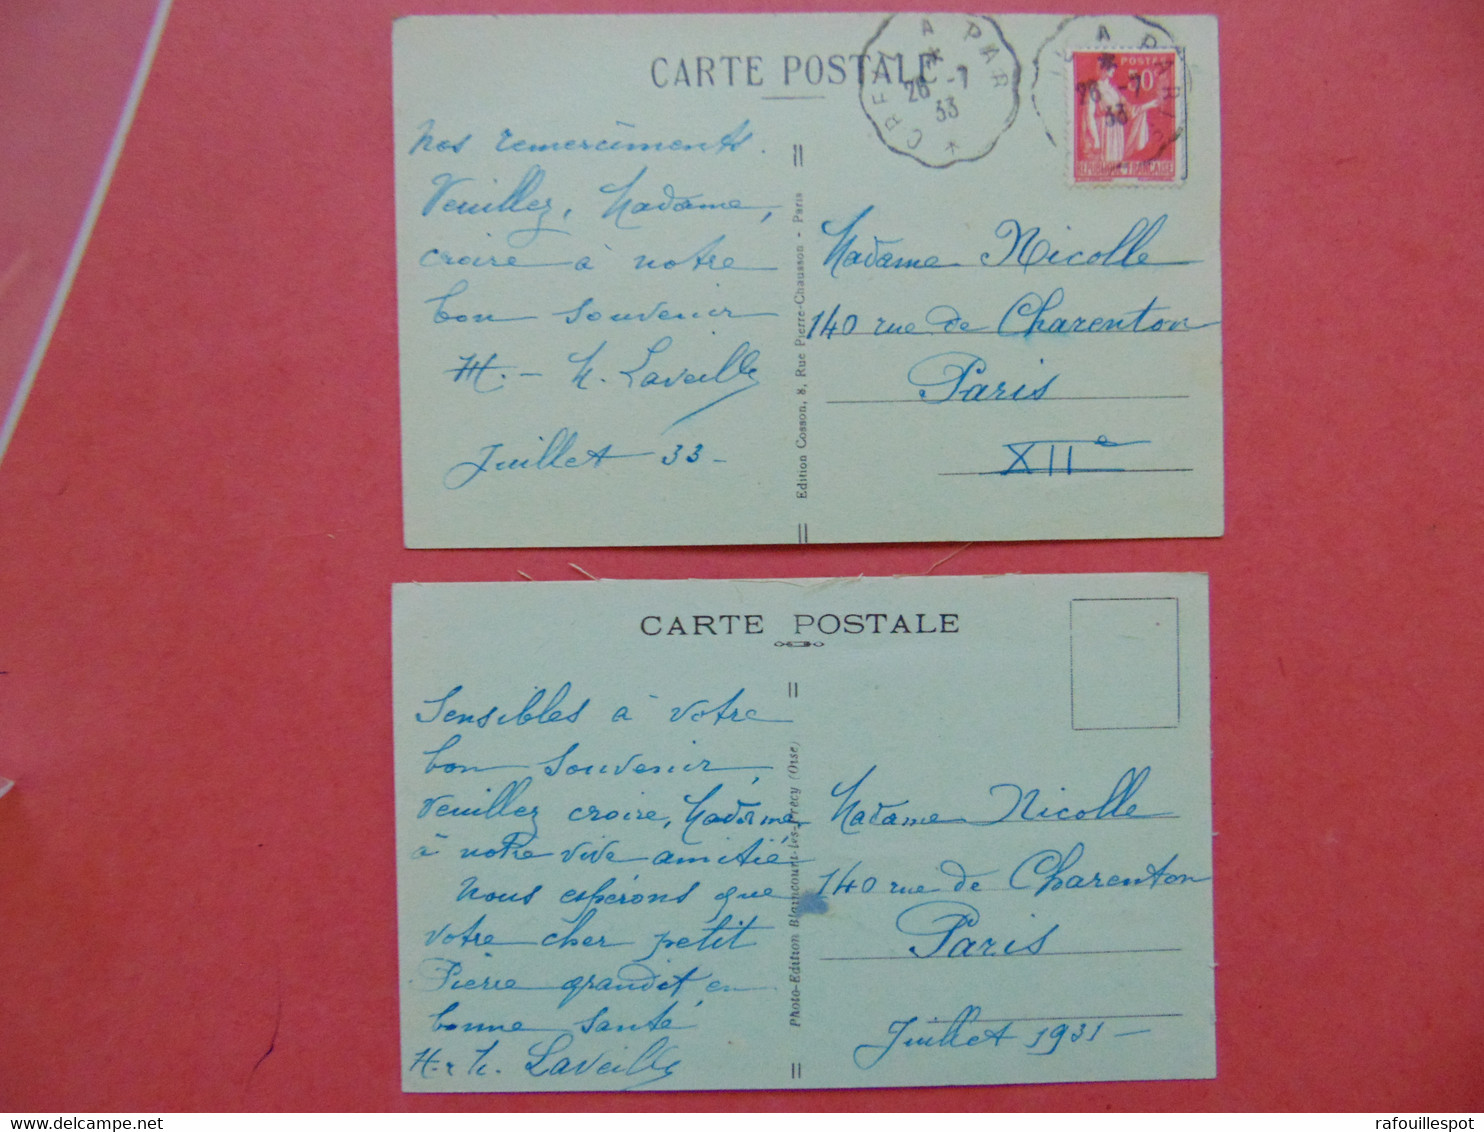 CARTE POSTALE
A PAR
26 -7
33
A PARIS
26 -7
33
POSTES
50c
REPUBLIQUE FRANCAISE
Nos remerciements.
Veuillez, Madame,
croire à notre
bon souvenir
M. - H. Laveille
Juillet 33 -
Edition Cosson, 8, Rue Pierre-Chausson - Paris
Madame Nicolle
140 rue de Charenton
Paris
XIIe
CARTE POSTALE
Sensibles à votre
bon souvenir,
Veuillez croire, Madame,
à notre vive amitié
Nous espérons que
votre cher petit
Pierre grandit en
bonne santé
Laveille
Photo-Edition Blaincourt-les-Précy (Oise)
Madame Nicolle
140 rue de Charenton
Paris
Juillet 1931 -
rafouillespot